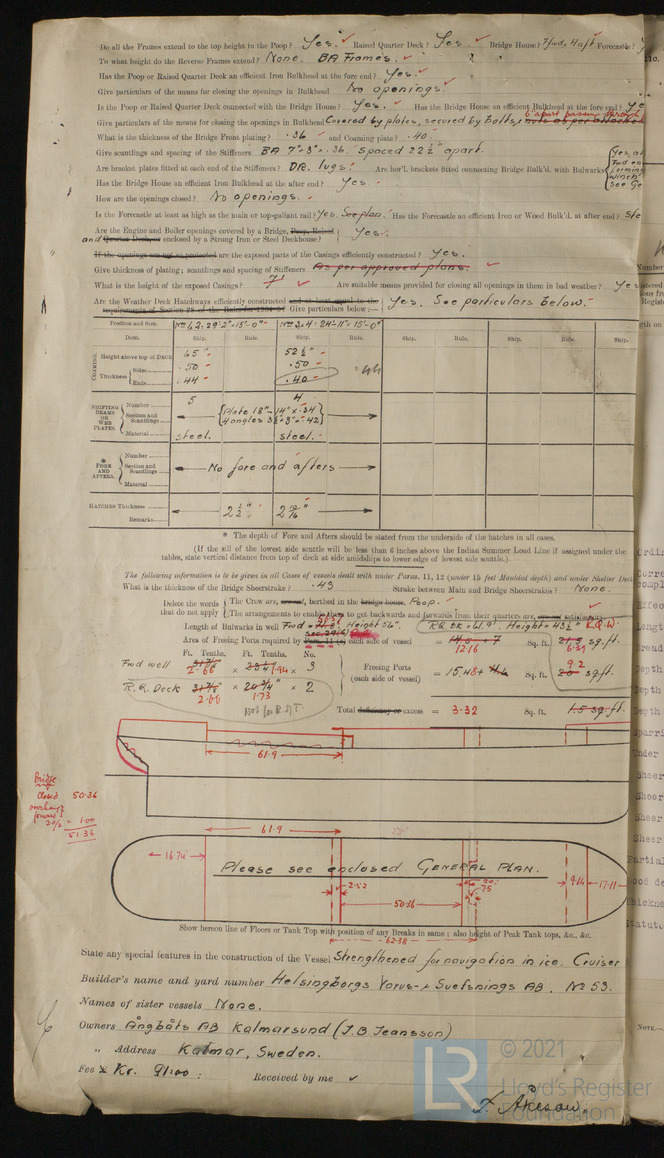 Do all the Frames extend to the top height in the Poop? Yes. Raised Quarter Deck? Yes. Bridge House? Fwd, 4 aft. Forecastle?
To what height do the Reverse Frames extend? None. BA Frames.
Has the Poop or Raised Quarter Deck an efficient Iron Bulkhead at the fore end? Yes.
Give particulars of the means for closing the openings in Bulkhead No openings.
Is the Poop or Raised Quarter Deck connected with the Bridge House? Yes. Has the Bridge House an efficient Bulkhead at the fore end? Ye
Give particulars of the means for closing the openings in Bulkhead Covered by plates, secured by bolts,
What is the thickness of the Bridge Front plating? .36 and Coaming plate? .40.
Give scantlings and spacing of the Stiffeners BA 7" × 3" × .36. Spaced 22 ½" apart.
Are bracket plates fitted at each end of the Stiffeners? DR. lugs. Are hor'l. brackets fitted connecting Bridge Bulk'd. with Bulwarks
Has the Bridge House an efficient Iron Bulkhead at the after end? Yes.
How are the openings closed? No openings.
Is the Forecastle at least as high as the main or top-gallant rail? Yes. See plan. Has the Forecastle an efficient Iron or Wood Bulk'd. at after end? Ste
Are the Engine and Boiler openings covered by a Bridge, Poop, Raised
and Quarter Deck, or enclosed by a Strong Iron or Steel Deckhouse? Yes.
If the openings are not so protected are the exposed parts of the Casings efficiently constructed? Yes.
Give thickness of plating; scantlings and spacing of Stiffeners As per approved plans.
What is the height of the exposed Casings? 7' Are suitable means provided for closing all openings in them in bad weather? Yes
Are the Weather Deck Hatchways efficiently constructed and at least equal to the
Give particulars below:— Yes. See particulars below.
Position and Size. Nos 1, 2: 29'-2" × 15'-0" Nos 3, 4: 24'-11" × 15'-0"
Item. Ship. Rule. Ship. Rule. Ship. Rule. Ship. Rule. Ship.
COAMING Height above top of DECK 65" 52 ½"
Thickness Sides .50 .50
Ends .44 .40
SHIFTING BEAMS OR WEB PLATES. Number 5 4
Section and Scantlings Plate 18"-14" × .34
4 angles 3½" × 3" × .42
Material steel. steel.
* FORE AND AFTERS. Number
Section and Scantlings No fore and afters
Material
HATCHES Thickness 2 ½"
Remarks
* The depth of Fore and Afters should be stated from the underside of the hatches in all cases.
(If the sill of the lowest side scuttle will be less than 6 inches above the Indian Summer Load Line if assigned under the
tables, state vertical distance from top of deck at side amidships to lower edge of lowest side scuttle.)
The following information is to be given in all Cases of vessels dealt with under Paras. 11, 12 (under 15 feet Moulded depth) and under Shelter Deck
What is the thickness of the Bridge Sheerstrake? .43 Strake between Main and Bridge Sheerstrakes? None.
Delete the words that do not apply The Crew are, are not, berthed in the bridge house. Poop.
The arrangements to enable them to get backwards and forwards from their quarters are, are not satisfactory
Length of Bulwarks in well Fwd Height 56". R.Q. DK = 61.9'. Height = 43½" R.Q.D.
Area of Freeing Ports required by each side of vessel = 12.16 Sq. ft. 6.39 sq.ft.
Ft. Tenths. Ft. Tenths. No.
Fwd well 2.66 × 1.94 × 3
Freeing Ports (each side of vessel) = 15.48 Sq. ft. 9.2 sq.ft.
R.Q. Deck 2.66 × 1.73 × 2
Total deficiency or excess = 3.32 Sq. ft. 1.5 sq.ft.
61.9
Bridge
closed 50.36
forward
2.0/2 = 1.00
51.36
61.9
16.74
Please see enclosed GENERAL PLAN.
2.52
.75
50.36
9.14
17.11
62.38
Show hereon line of Floors or Tank Top with position of any Breaks in same; also height of Peak Tank tops, &c., &c.
State any special features in the construction of the Vessel Strengthened for navigation in ice. Cruiser
Builder's name and yard number Helsingborgs Varvs- & Svetsnings AB. No 53.
Names of sister vessels None.
Owners Ångbåts AB Kalmarsund (J. B. Jeansson)
„ Address Kalmar, Sweden.
Fee Kr. 91:00: Received by me
F. Åkeson.
LR © 2021
Lloyd's Register
Foundation